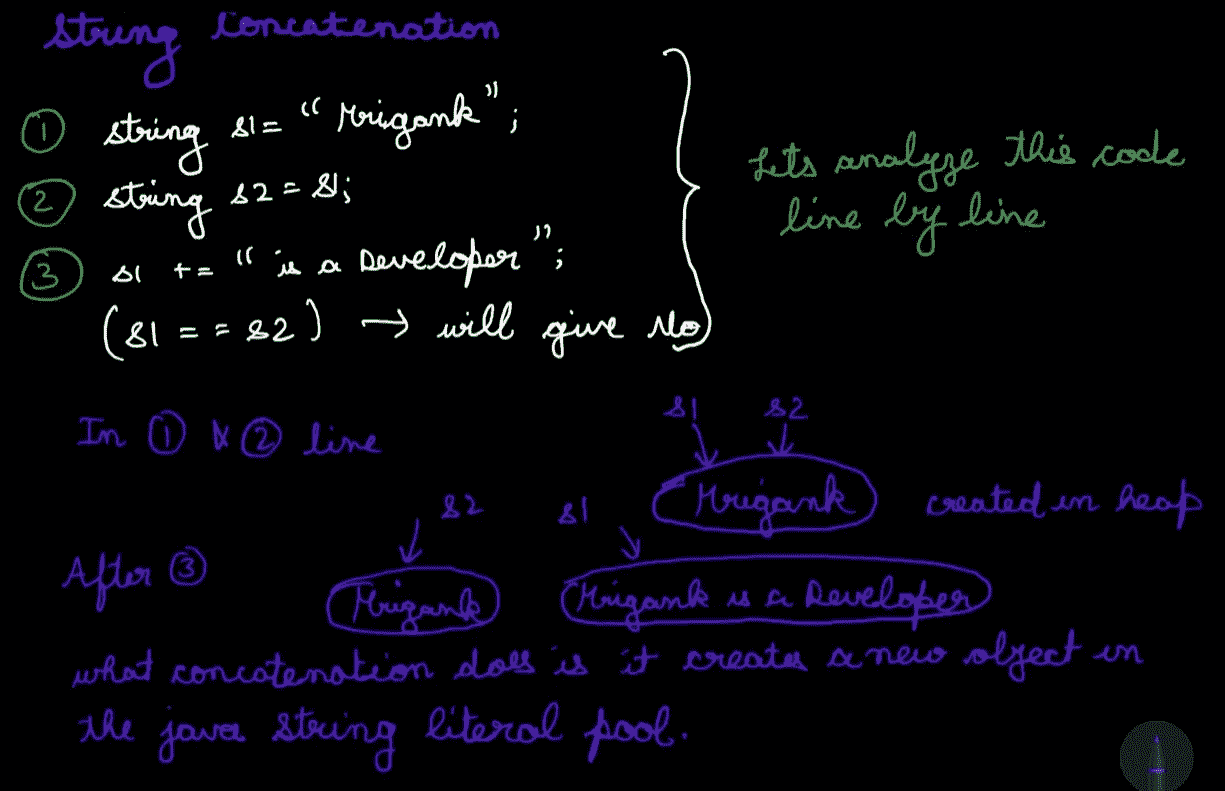 String Concatenation
① string s1 = "Mrigank";
② string s2 = s1;
③ s1 += "is a Developer";
(s1 == s2) → will give No
Lets analyze this code
line by line
In ① & ② line
s1 s2
Mrigank created in heap
s2 s1
After ③ Mrigank Mrigank is a Developer
what concatenation does is it creates a new object in
the java string literal pool.
1